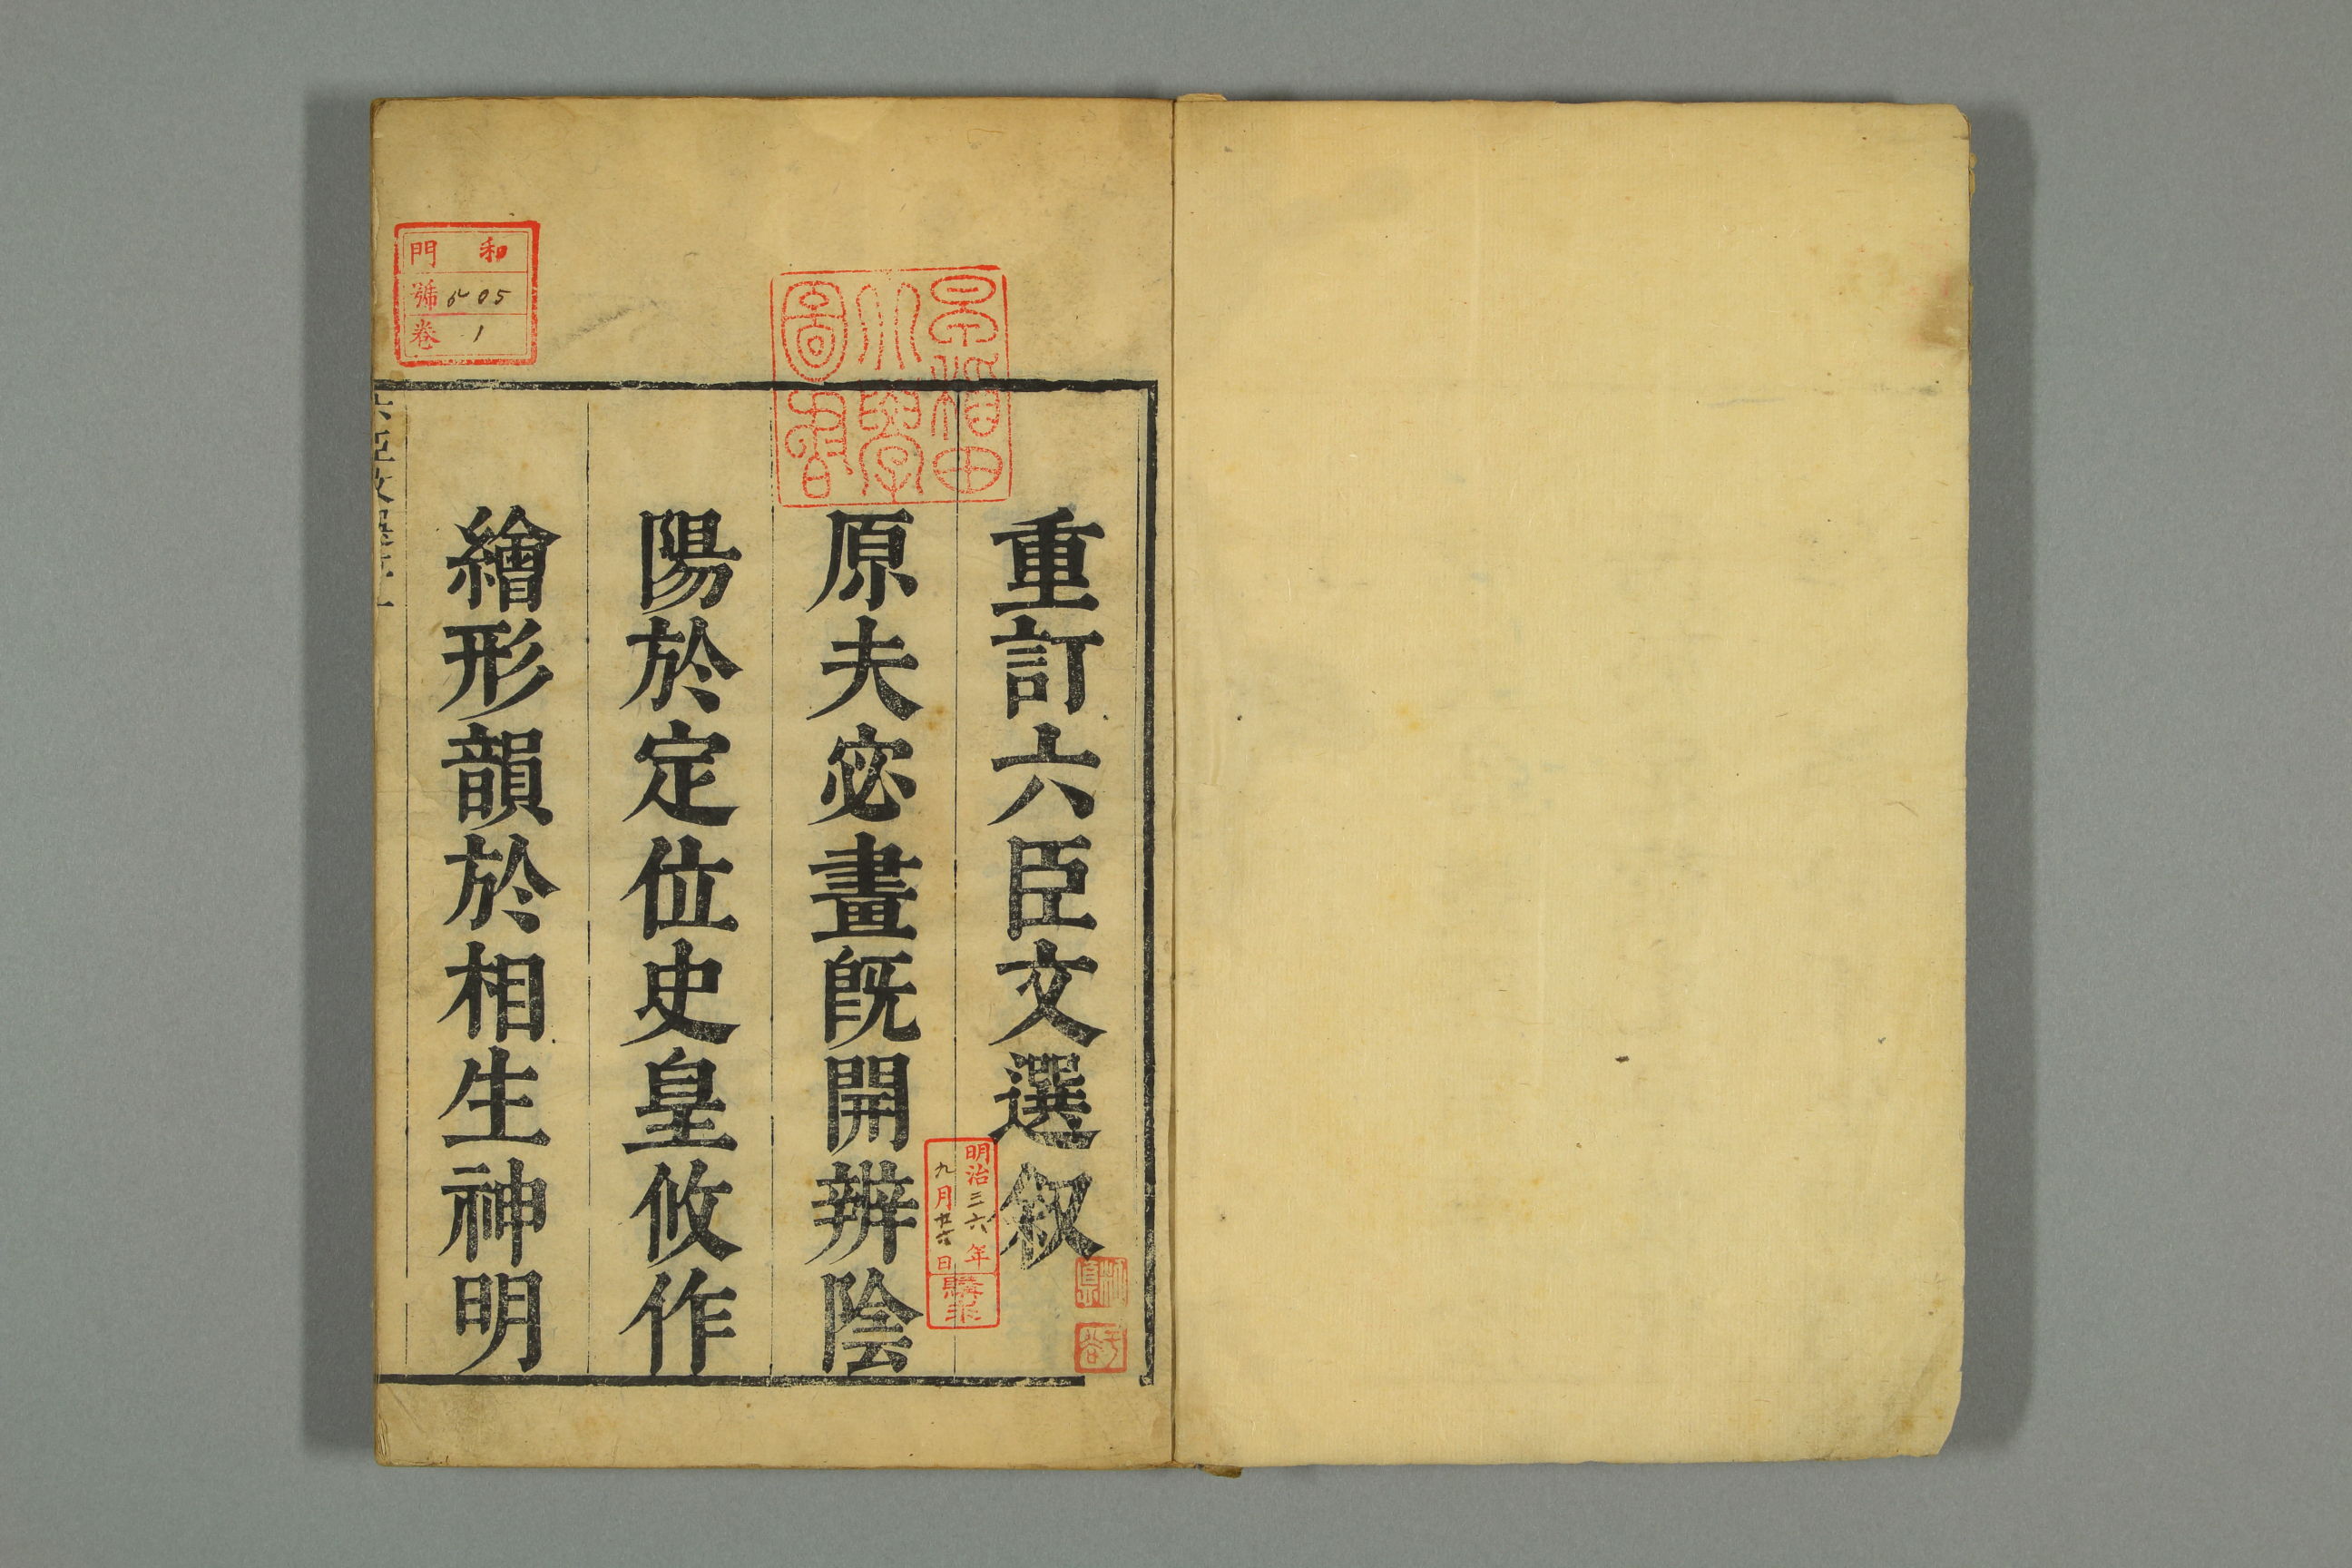 重訂六臣文選叙
原夫宓畫既開辨陰
陽於定位史皇攸作
繪形韻於相生神明
早稲田大學圖書
明治三六年
九月廿六日
購求
和門
號 605
卷 1